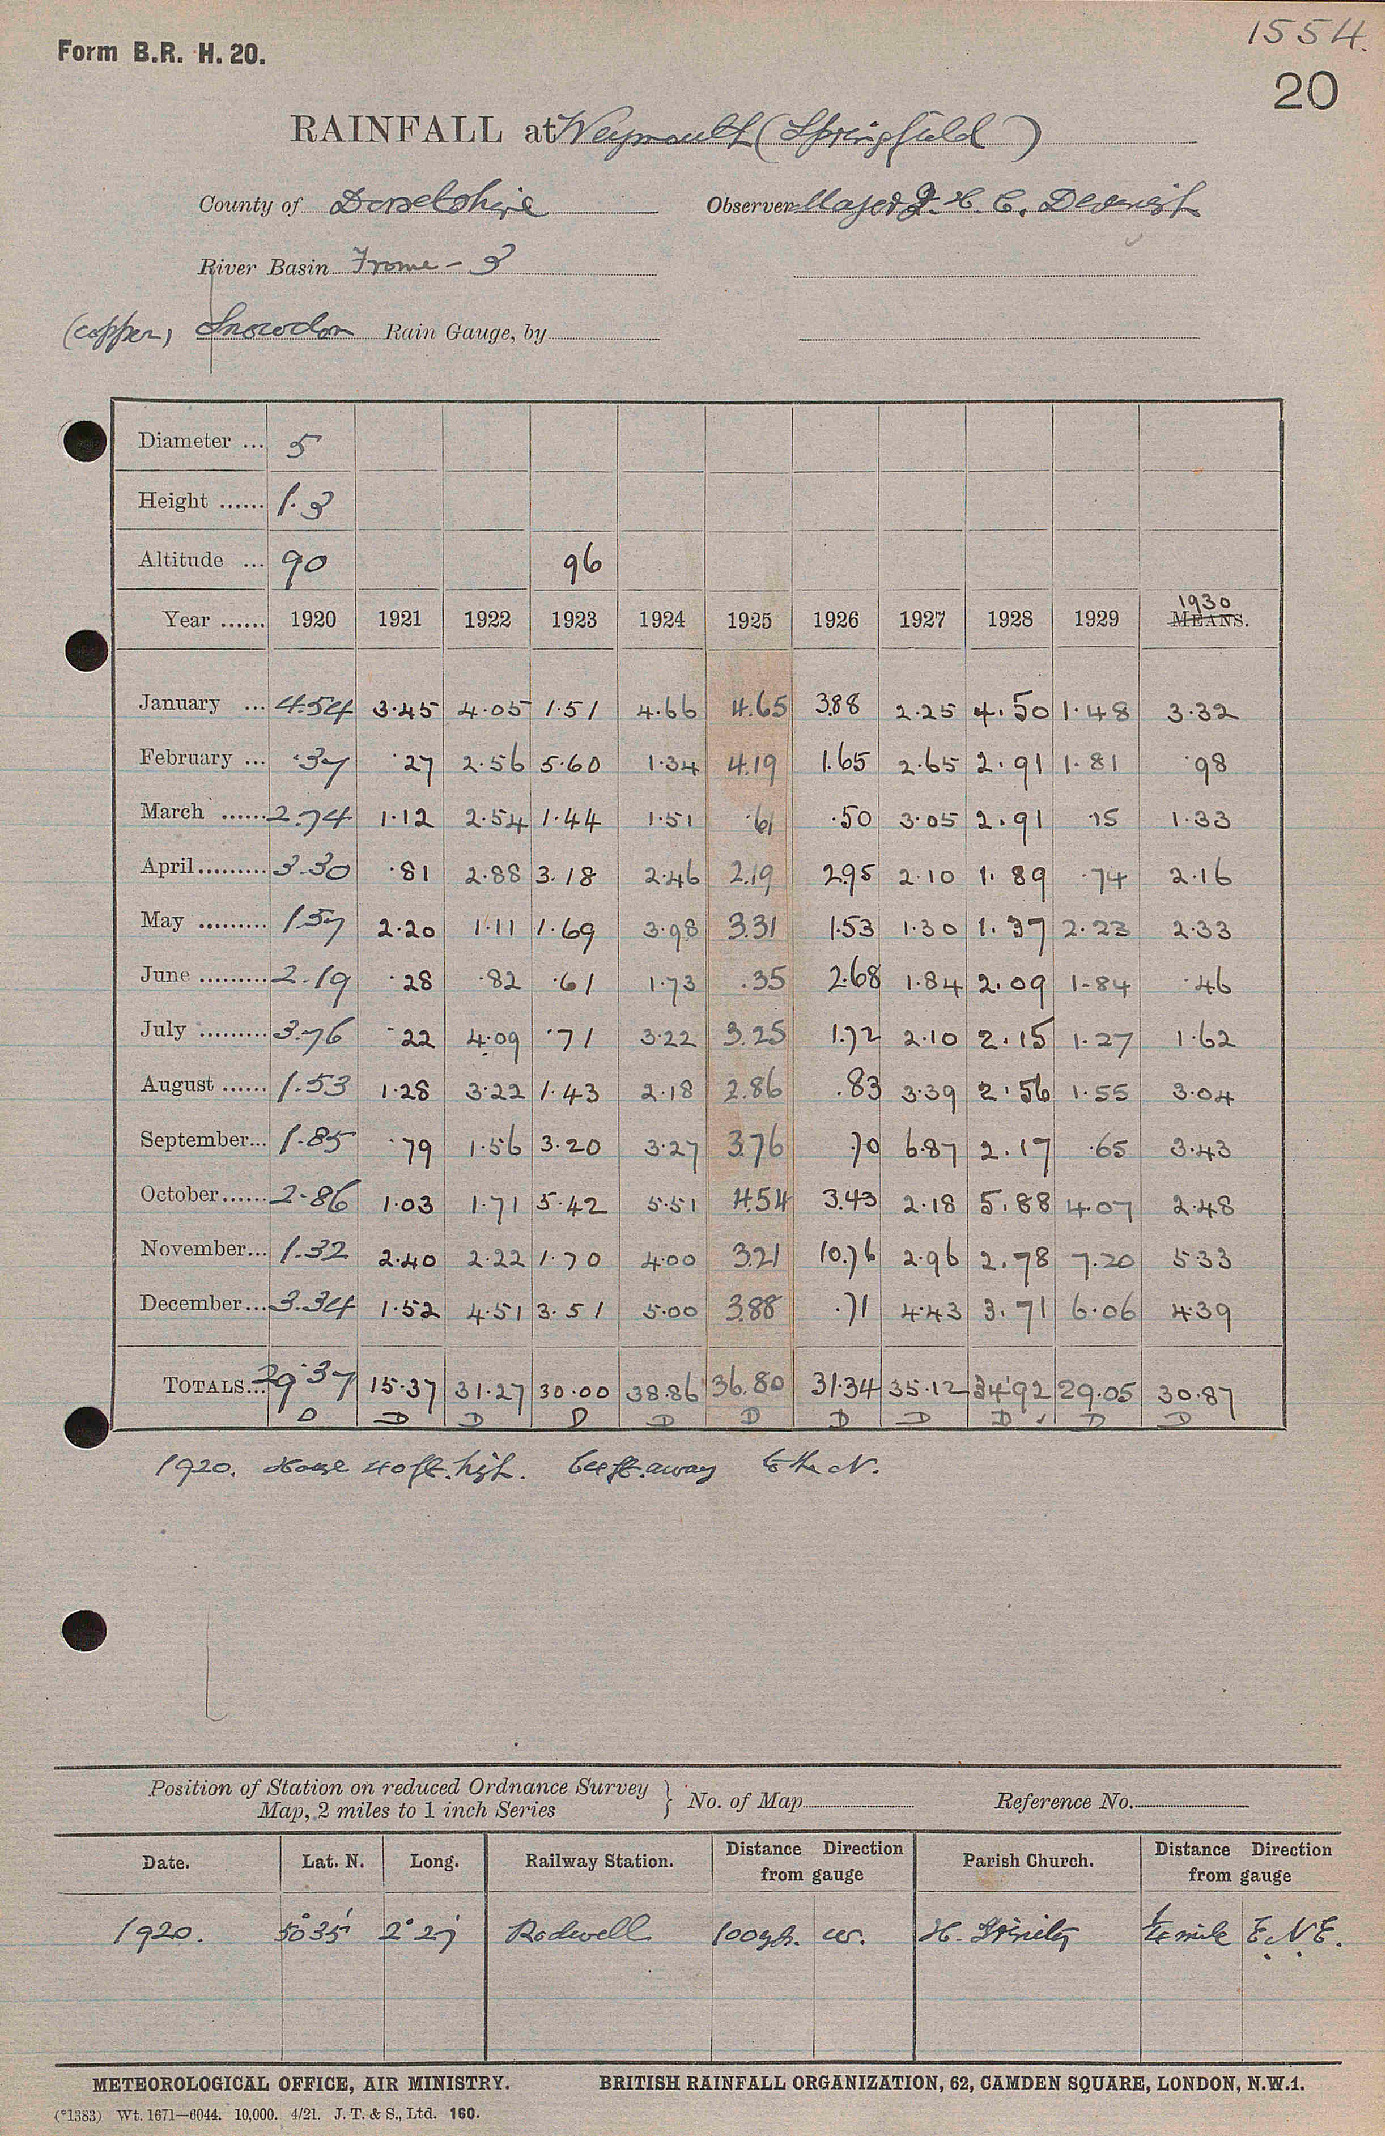 1554.
Form B.R. H. 20.
20
RAINFALL at Weymouth (Springfield)
County of Dorsetshire Observer Major J. H. C. Devenish
River Basin Frome - 3
(copper) Snowdon Rain Gauge, by
Diameter ... 5
Height ...... 1.3
Altitude ... 90 96
Year ...... 1920 1921 1922 1923 1924 1925 1926 1927 1928 1929 1930 MEANS.
January ... 4.54 3.45 4.05 1.51 4.66 4.65 3.88 2.25 4.50 1.48 3.32
February ... .37 .27 2.56 5.60 1.34 4.19 1.65 2.65 2.91 1.81 .98
March ...... 2.74 1.12 2.54 1.44 1.51 .61 .50 3.05 2.91 .15 1.33
April ......... 3.30 .81 2.88 3.18 2.46 2.19 2.95 2.10 1.89 .74 2.16
May ......... 1.57 2.20 1.11 1.69 3.98 3.31 1.53 1.30 1.37 2.23 2.33
June ......... 2.19 .28 .82 .61 1.73 .35 2.68 1.84 2.09 1.84 .46
July ......... 3.76 .22 4.09 .71 3.22 3.25 1.72 2.10 2.15 1.27 1.62
August ...... 1.53 1.28 3.22 1.43 2.18 2.86 .83 3.39 2.56 1.55 3.04
September... 1.85 .79 1.56 3.20 3.27 3.76 .70 6.87 2.17 .65 3.43
October...... 2.86 1.03 1.71 5.42 5.51 4.54 3.43 2.18 5.88 4.07 2.48
November... 1.32 2.40 2.22 1.70 4.00 3.21 10.76 2.96 2.78 7.20 5.33
December... 3.34 1.52 4.51 3.51 5.00 3.88 .71 4.43 3.71 6.06 4.39
TOTALS... 29.37 15.37 31.27 30.00 38.86 36.80 31.34 35.12 34.92 29.05 30.87
D D D D D D D D D ✓ D D
1920. House 40 ft. high. 64 ft. away to the N.
Position of Station on reduced Ordnance Survey
Map, 2 miles to 1 inch Series } No. of Map Reference No.
Date. Lat. N. Long. Railway Station. Distance Direction from gauge Parish Church. Distance Direction from gauge
1920. 50° 35' 2° 27' Rodwell 100 yds. W. H. Trinity ¼ mile E.N.E.
METEOROLOGICAL OFFICE, AIR MINISTRY. BRITISH RAINFALL ORGANIZATION, 62, CAMDEN SQUARE, LONDON, N.W.1.
(*1383) Wt. 1671—6044. 10,000. 4/21. J. T. & S., Ltd. 160.